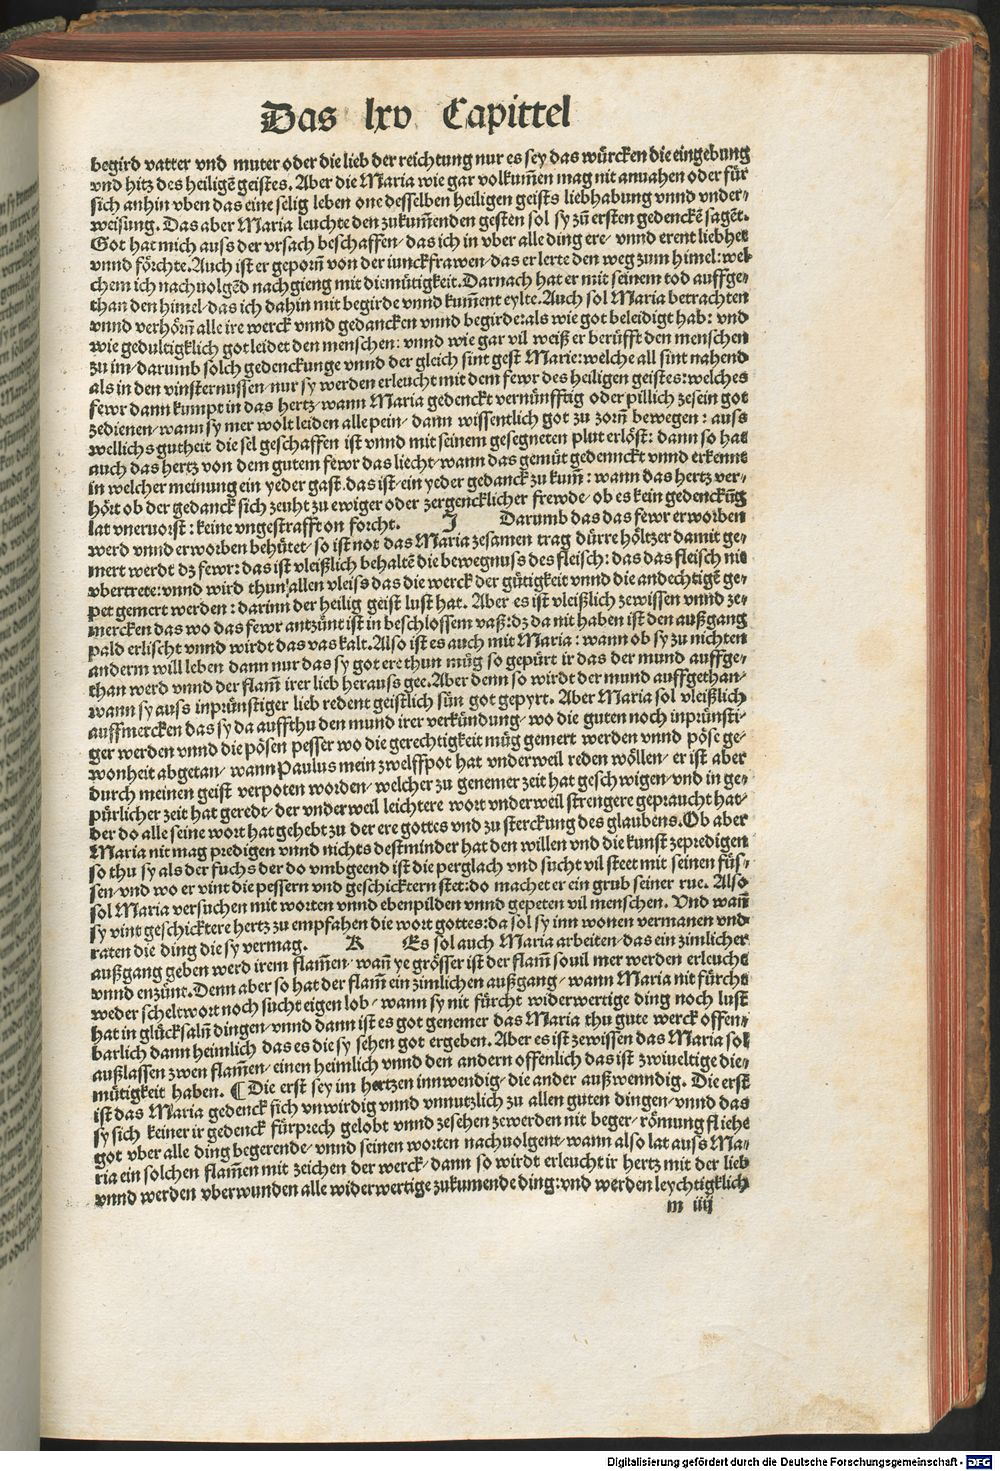 Das lxv Capittel
begird vatter vnd muter oder die lieb der reichtung nur es sey das würcken die eingebung
vnd hitz des heiligē geistes. Aber die Maria wie gar volkum̄en mag nit anuahen oder für
sich anhin vben das eine selig leben one desselben heiligen geists liebhabung vnnd vnder⸗
weisung. Das aber Maria leuchte den zukum̄enden gesten sol sy zū ersten gedenckē sagēt.
Got hat mich auss der vrsach beschaffen/ das ich in vber alle ding ere/ vnnd erent liebhet
vnnd förchte. Auch ist er geporn̄ von der iunckfrawen/ das er lerte den weg zum himel: wel⸗
chem ich nachuolgēd nachgieng mit diemütigkeit. Darnach hat er mit seinem tod auffge⸗
than den himel/ das ich dahin mit begirde vnnd kum̄ent eylte. Auch sol Maria betrachten
vnnd verhörn̄ alle ire werck vnnd gedancken vnnd begirde: als wie got beleidigt hab: vnd
wie gedultigklich got leidet den menschen: vnnd wie gar vil weiß er berüfft den menschen
zu im/ darumb solch gedenckunge vnnd der gleich sint gest Marie: welche all sint nahend
als in den vinsternussen/ nur sy werden erleucht mit dem fewr des heiligen geistes: welches
fewr dann kumpt in das hertz/ wann Maria gedenckt vernünfftig oder pillich zesein got
zedienen/ wann sy mer wolt leiden alle pein/ dann wissentlich got zu zorn̄ bewegen: auss
wellichs gutheit die sel geschaffen ist vnnd mit seinem gesegneten plut erlöst: dann so hat
auch das hertz von dem gutem fewr das liecht/ wann das gemüt gedennckt vnnd erkennt
in welcher meinung ein yeder gast. das ist/ ein yeder gedanck zu kum̄: wann das hertz ver⸗
hört ob der gedanck sich zeuht zu ewiger oder zergencklicher frewde/ ob es kein gedenckūg
lat vneruorst: keine vngestrafft on forcht. J Darumb das das fewr erworben
werd vnnd erworben behütet/ so ist not das Maria zesamen trag dürre höltzer damit ge⸗
mert werdt dz fewr: das ist vleißlich behaltē die bewegnuss des fleisch: das das fleisch nit
vbertrete: vnnd wird thun allen vleiss das die werck der gütigkeit vnnd die andechtigē ge⸗
pet gemert werden: darinn der heilig geist lust hat. Aber es ist vleißlich zewissen vnnd ze⸗
mercken das wo das fewr antzünt ist in beschlossem vaß: dz da nit haben ist den außgang
pald erlischt vnnd wirdt das vas kalt. Also ist es auch mit Maria: wann ob sy zu nichten
anderm will leben dann nur das sy got ere thun müg so gepürt ir das der mund auffge⸗
than werd vnnd der flam̄ irer lieb herauss gee. Aber denn so wirdt der mund auffgethan/
wann sy auss inprünstiger lieb redent geistlich sün got gepyrt. Aber Maria sol vleißlich
auffmercken das sy da auffthu den mund irer verkündung/ wo die guten noch inprünsti⸗
ger werden vnnd die pösen pesser wo die gerechtigkeit müg gemert werden vnnd pöse ge⸗
wonheit abgetan/ wann Paulus mein zwelffpot hat vnderweil reden wöllen/ er ist aber
durch meinen geist verpoten worden/ welcher zu genemer zeit hat geschwigen/ vnd in ge⸗
pürlicher zeit hat geredt/ der vnderweil leichtere wort vnderweil strengere gepraucht hat/
der do alle seine wort hat gehebt zu der ere gottes vnd zu sterckung des glaubens. Ob aber
Maria nit mag predigen vnnd nichts destminder hat den willen vnd die kunst zepredigen
so thu sy als der fuchs der do vmbgeend ist die perglach vnd sucht vil steet mit seinen füs⸗
sen/ vnd wo er vint die pessern vnd geschicktern stet: do machet er ein grub seiner rue. Also
sol Maria versuchen mit worten vnnd ebenpilden vnnd gepeten vil menschen. Vnd wan̄
sy vint geschicktere hertz zu empfahen die wort gottes: da sol sy inn wonen vermanen vnd
raten die ding die sy vermag. K Es sol auch Maria arbeiten/ das ein zimlicher
außgang geben werd irem flam̄en/ wan̄ ye grösser ist der flam̄ souil mer werden erleucht
vnnd enzünt. Denn aber so hat der flam̄ ein zimlichen außgang/ wann Maria nit fürcht
weder scheltwort noch sucht eigen lob/ wann sy nit fürcht widerwertige ding noch lust
hat in glücksaln̄ dingen/ vnnd dann ist es got genemer das Maria thu gute werck offen⸗
barlich dann heimlich das es die sy sehen got ergeben. Aber es ist zewissen das Maria sol
außlassen zwen flam̄en/ einen heimlich vnnd den andern offenlich das ist zwiueltige die⸗
mütigkeit haben. ¶ Die erst sey im hertzen innwendig/ die ander außwenndig. Die erst
ist das Maria gedenck sich vnwirdig vnnd vnnutzlich zu allen guten dingen/ vnnd das
sy sich keiner ir gedenck fürprech gelobt vnnd zesehen zewerden nit beger/ römung fliehe
got vber alle ding begerende/ vnnd seinen worten nachuolgent/ wann also lat auss Ma⸗
ria ein solchen flam̄en mit zeichen der werck/ dann so wirdt erleucht ir hertz mit der lieb
vnnd werden vberwunden alle widerwertige zukumende ding: vnd werden leychtigklich
m iiij
Digitalisierung gefördert durch die Deutsche Forschungsgemeinschaft - DFG